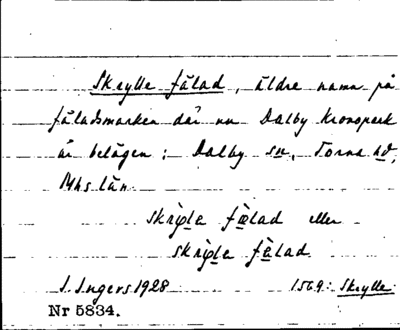 Skrylle fälad, äldre namn på
fäladsmarken där nu Dalby Kronopark
är belägen; Dalby sn, Torna hd,
Mhs län.
skrỳlle fælad eller
skrỳlle fèlad.
I. Ingers 1928 1569: Skrylle
Nr 5834.